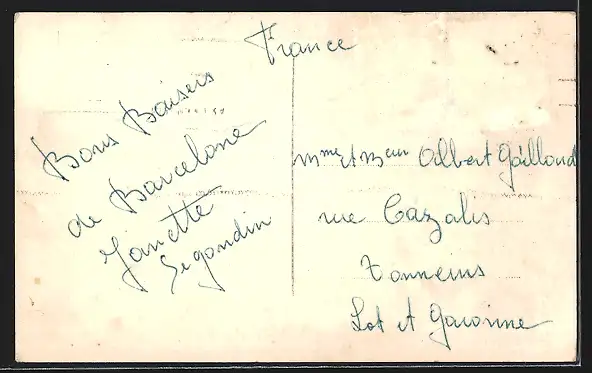 France
Bons Baisers
de Barcelone
Janette
Segondin
Mme et Mseur Albert Gailloud
rue Cazalis
Tonneins
Lot et Garonne